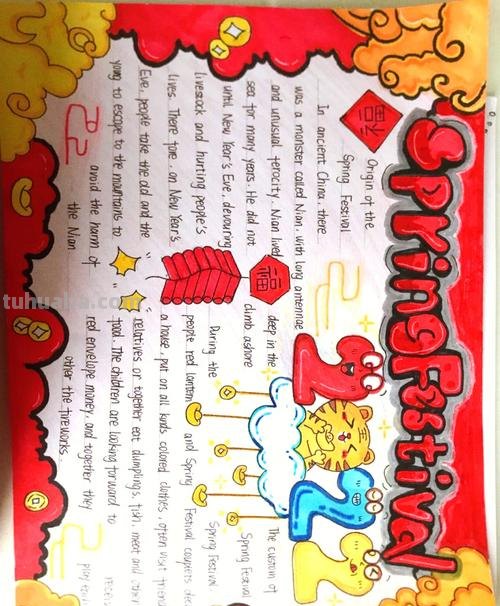 Spring Festival
福
Origin of the
Spring Festival
In ancient China, there
was a monster called Nian, with long antennae
and unusual ferocity. Nian lived deep in the
sea for many years. He did not climb ashore
until New Year's Eve, devouring
livestock and hurting people's
lives. There fore, on New Year's
Eve, people take the old and the
yong to escape to the mountains to
avoid the harm of
the Nian
福
2022
The custom of
Spring Festival
During the Spring Festival
people red lantern and Spring Festival couplets
a house, put on all kinds colored clothes, often visit
relatives or together eat dumplings, fish, meat and
food. The children are looking forward to
red envelope money, and together they
other the fireworks.
tuhuaka.com